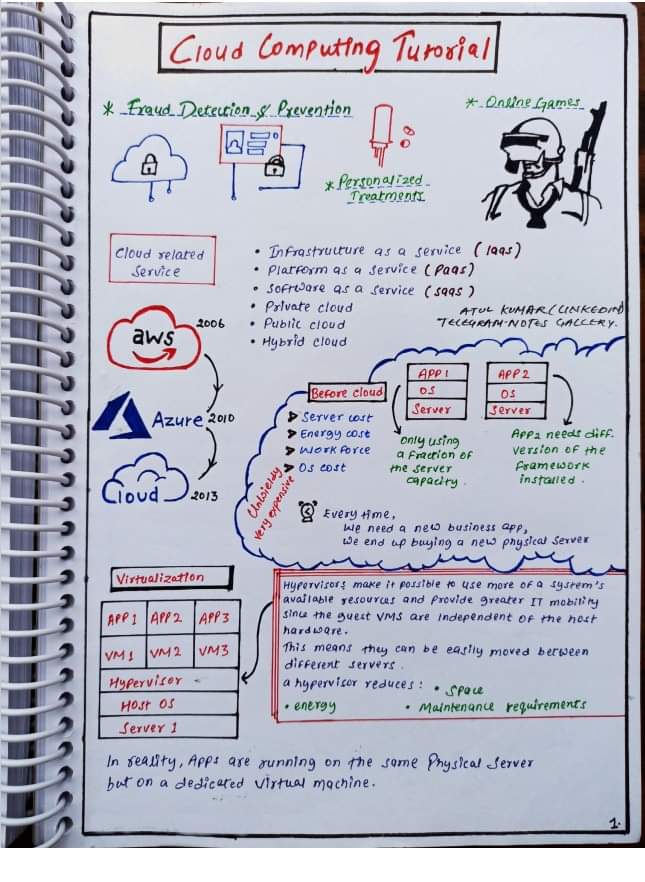 Cloud Computing Tutorial
* Fraud Detection & Prevention
* Online Games
* Personalized
Treatments
Cloud related
Service
• Infrastructure as a service (Iaas)
• Platform as a service (Paas)
• Software as a service (saas)
• Private cloud
• Public cloud
• Hybrid cloud
ATUL KUMAR (LINKEDIN)
TELEGRAM-NOTES GALLERY.
aws
2006
Azure 2010
Cloud
2013
Before cloud
➤ Server cost
➤ Energy cost
➤ Workforce
➤ OS cost
Unwieldy
very expensive
APP 1
OS
Server
APP 2
OS
Server
only using
a fraction of
the server
capacity.
App2 needs diff.
version of the
framework
installed.
Every time,
we need a new business app,
we end up buying a new physical server
Virtualization
APP 1 APP 2 APP 3
VM 1 VM 2 VM3
Hypervisor
Host OS
Server 1
Hypervisors make it possible to use more of a system's
available resources and provide greater IT mobility
since the guest VMs are independent of the host
hardware.
This means they can be easily moved between
different servers.
a hypervisor reduces : • space
• energy • Maintenance requirements
In reality, Apps are running on the same Physical Server
but on a dedicated virtual machine.
1.